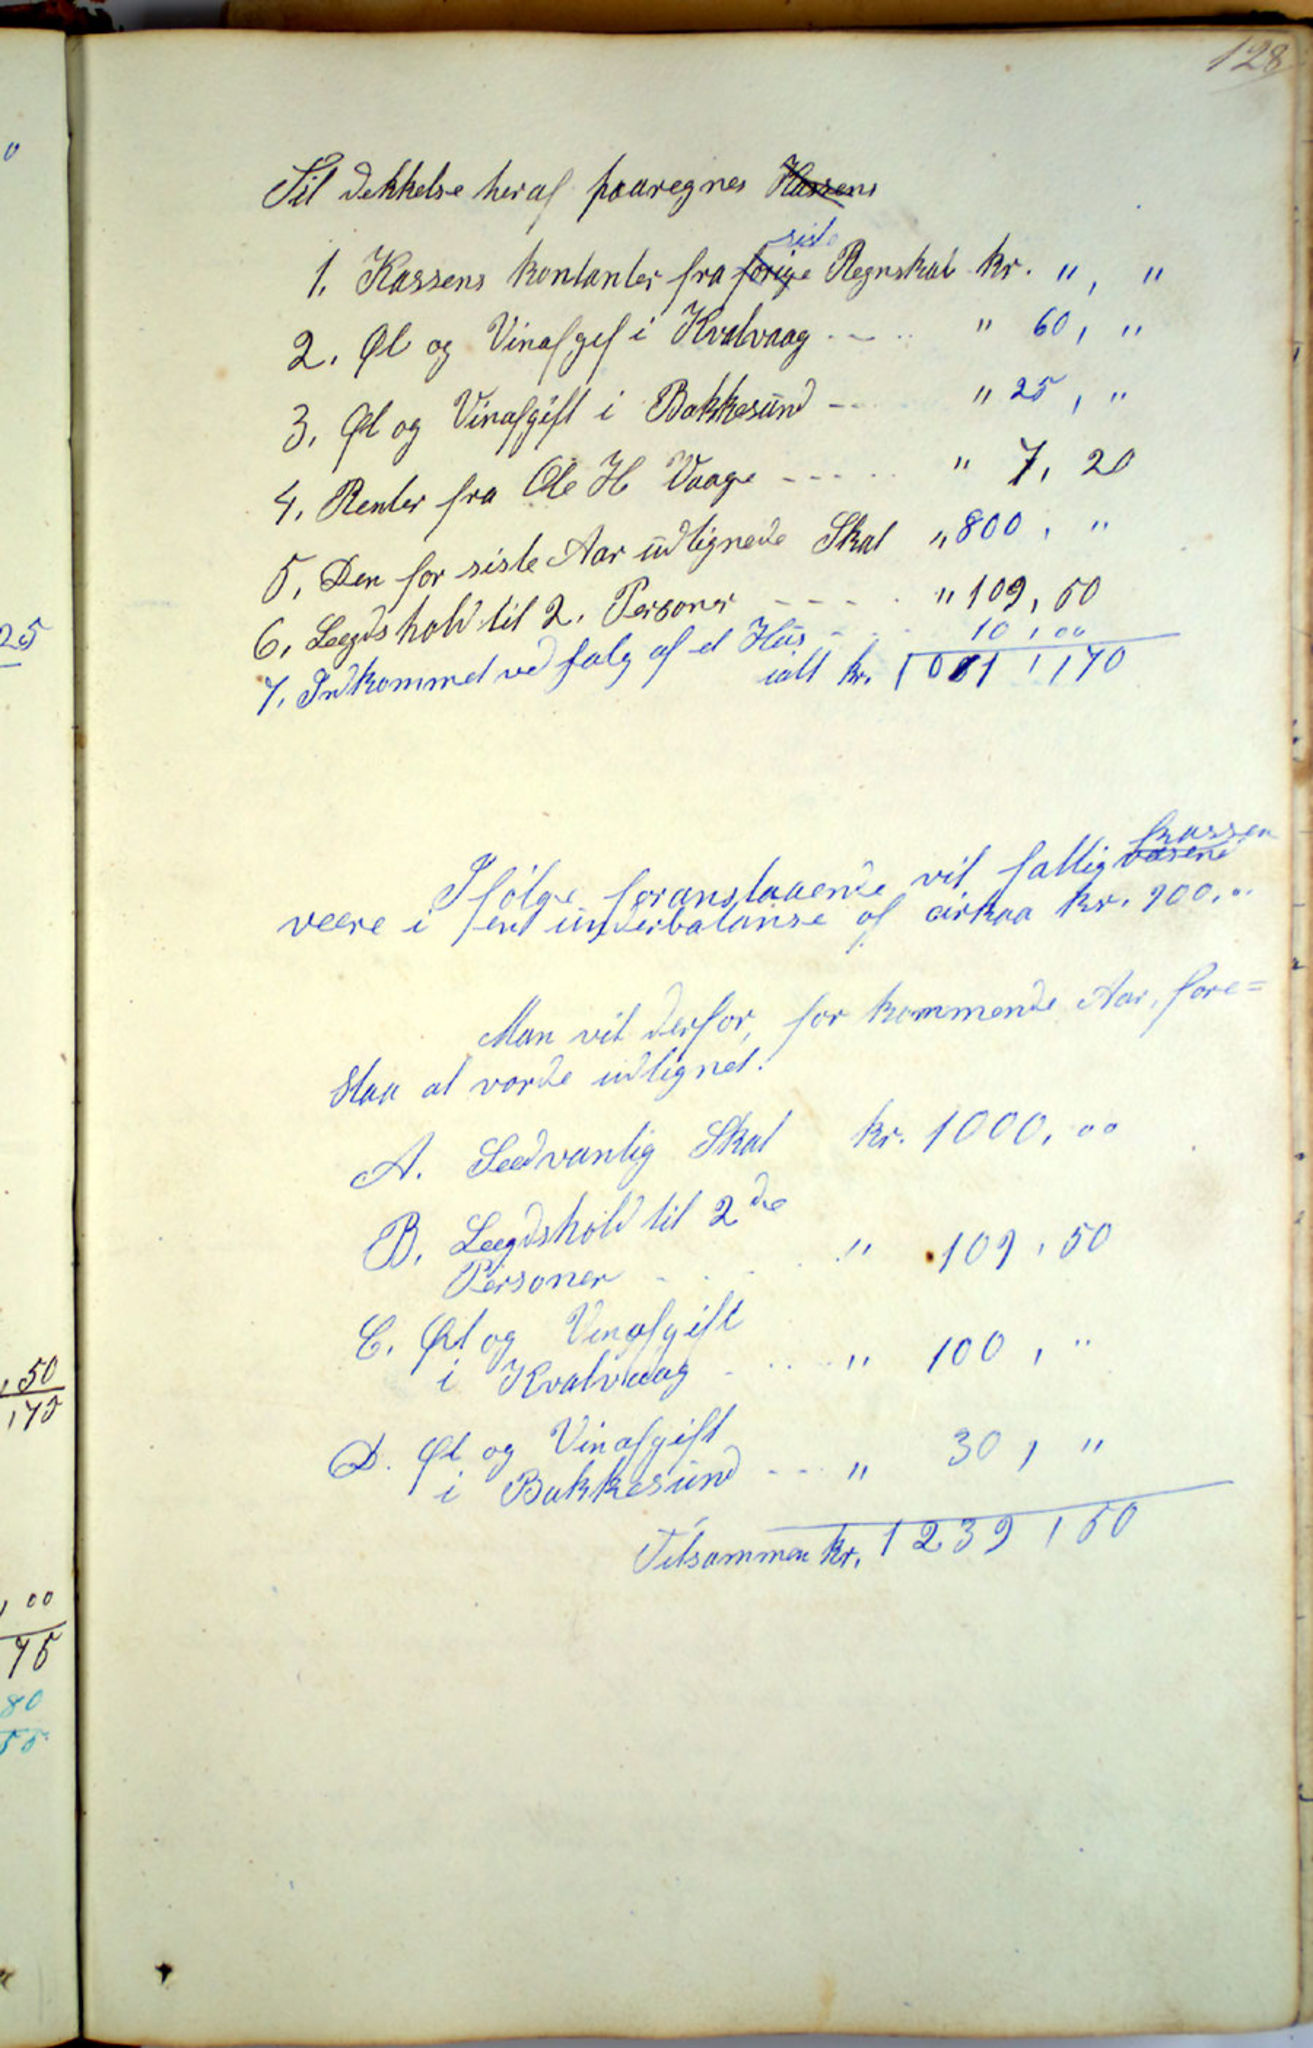 128
Til Dekkelse heraf paaregnes Kassens
siste
1. Kassens kontanter fra forige Regnskab kr. " , "
2. Øl og Vinafgif i Kvalvaag - - .. " 60, "
3. Øl og Vinafgift i Bakkesund - - " 25, "
4. Renter fra Ole H Vaage - - - - " 7, 20
5. Den for siste Aar udlignede Skat " 800, "
6. Lægdshold til 2. Personer - - - - " 109, 50
7. Indkommet ved salg af et Hus - - - 10, 00
ialt kr. 1011, 70
kassen
Ifølge foranstaaende vil fattigvæsend
være i en underbalanse af cirkaa kr. 900. "
Man vil derfor, for kommende Aar, fore=
staa at vorde udlignet:
A. Sædvanlig Skat kr. 1000, 00
B. Lægdshold til 2de
Personer - . . . " 109, 50
C. Øl og Vinafgift
i Kvalvaag . . . . " 100, "
D. Øl og Vinafgift
i Bakkesund - - - " 30, "
Tilsammen kr. 1239, 50
25
,50
,75
,00
75
80
55